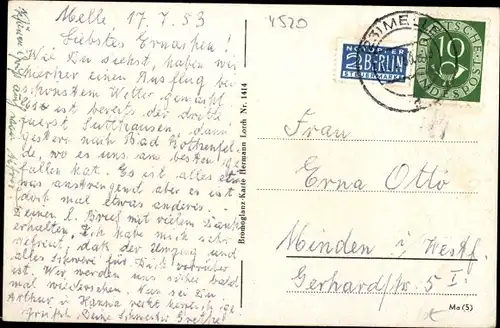 Melle 17.7.53
Liebstes Ernachen!
Wie Du siehst, haben wir
hierher einen Ausflug bei
schönstem Wetter gemacht.
Es ist bereits der dritte
zuerst Sutthausen, dann
gestern nach Bad Rothenfel-
de, wo es uns am besten ge-
fallen hat. Es ist alles etwas
was anstrengend aber es ist
doch mal etwas anderes.
Deinen l. Brief mit vielem Dank
erhalten. Ich habe mich sehr
gefreut, daß der Umzug und
alles Schwere für Dich vorüber
ist. Wir werden uns sicher bald
mal wiedersehen. Nun sei Du
Arthur u Hanna recht herzl. ge-
grüßt. Deine Schwester Grethe
4520
NOTOPFER
2 BERLIN
STEUERMARKE
DEUTSCHE
BUNDESPOST
10
Bromoglanz-Karte Hermann Lorch Nr. 1414
Frau
Erna Otto
Minden i/ Westf.
Gerhardstr. 5 I.
Ma (S)